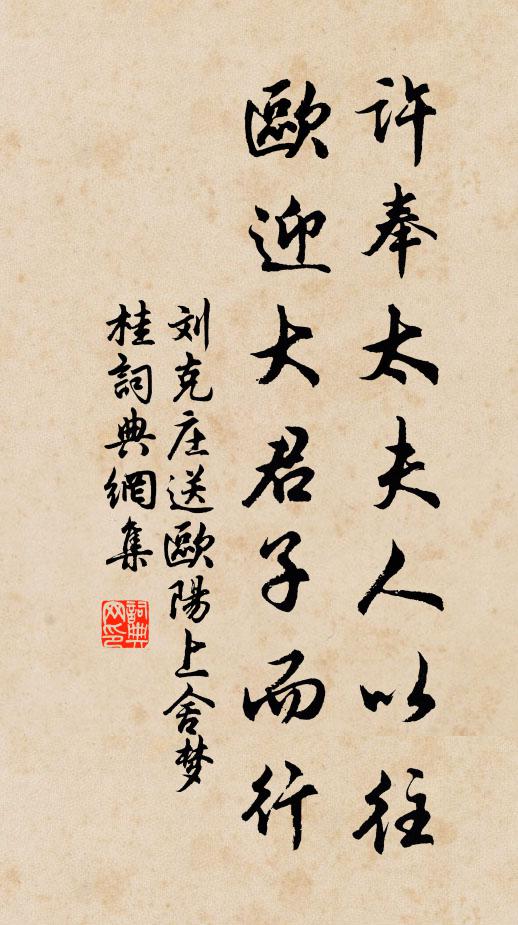 许奉太夫人以往
歐迎大君子而行
刘克庄送歐陽上舍梦
桂詞典網集
詞典
网印